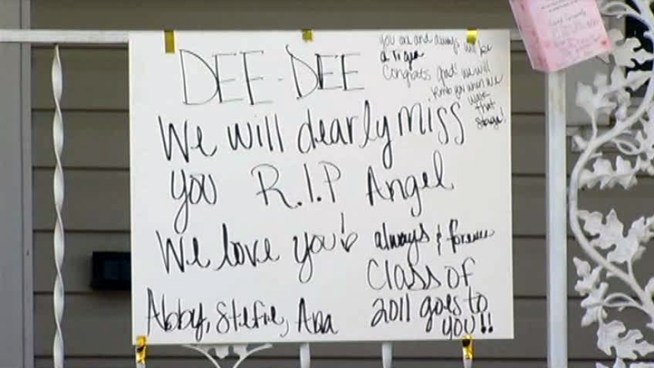 DEE-DEE
you are and always will be
a Tiger
Congrats grad! we will
remb you when we
walk
that
stage!
We will dearly miss
you R.I.P Angel
We love you! always & forever
Class of
2011 goes to
you!!
Abby, Stefie, Ana